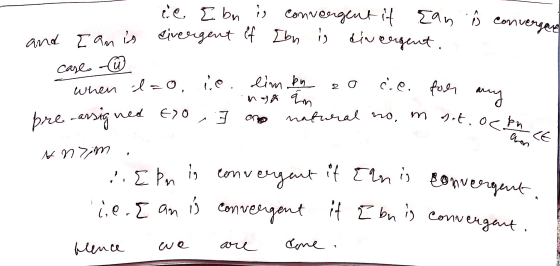 i.e Σ bn is convergent if Σan is converge
and Σ an is divergent if Σbn is divergent.
case - (ii)
when l=0, i.e. lim n→∞ pn/qn = 0 i.e. for any
pre-assigned ϵ>0, ∃ a natural no. m s.t. 0< pn/qn <ϵ
∀ n≥m.
∴ Σ pn is convergent if Σ qn is convergent.
i.e. Σ an is convergent if Σ bn is convergent.
Hence we are done.